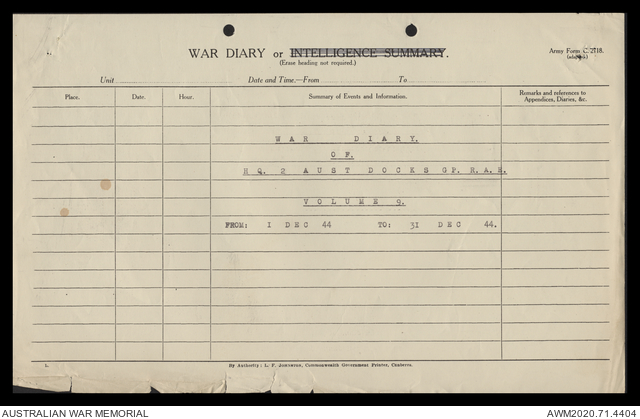 WAR DIARY or INTELLIGENCE SUMMARY.
(Erase heading not required.)
Army Form C. 2118.
Unit Date and Time.—From To
Place. Date. Hour. Summary of Events and Information. Remarks and references to Appendices, Diaries, &c.
WAR DIARY.
OF.
HQ. 2 AUST DOCKS GP. R.A.E.
VOLUME 9.
FROM: I DEC 44 TO: 3I DEC 44.
L. By Authority: L. F. Johnston, Commonwealth Government Printer, Canberra.
AUSTRALIAN WAR MEMORIAL AWM2020.71.4404